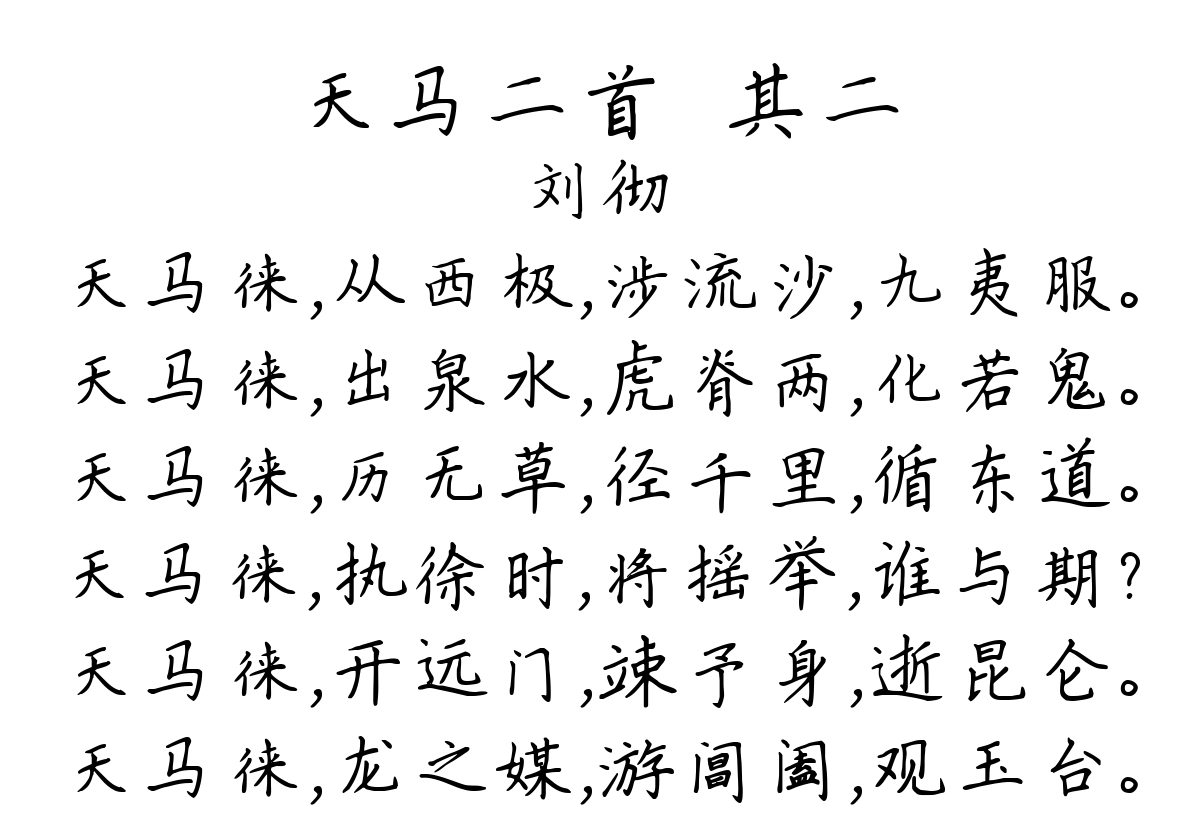 天马二首 其二
刘彻
天马徕,从西极,涉流沙,九夷服。
天马徕,出泉水,虎脊两,化若鬼。
天马徕,历无草,径千里,循东道。
天马徕,执徐时,将摇举,谁与期?
天马徕,开远门,竦予身,逝昆仑。
天马徕,龙之媒,游阊阖,观玉台。